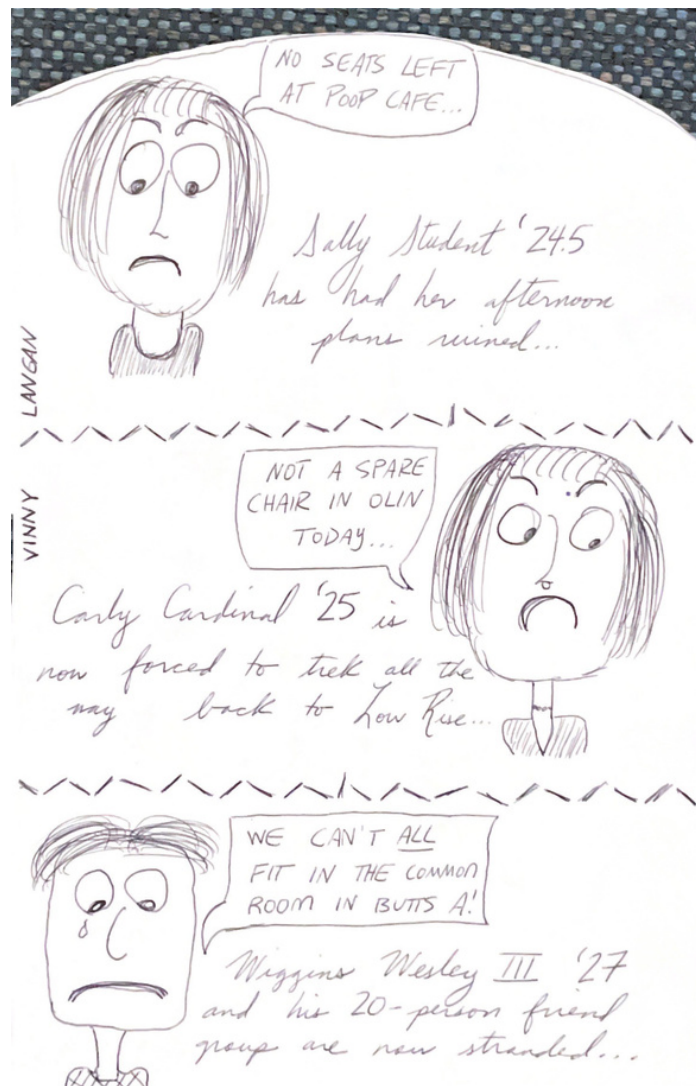 NO SEATS LEFT
AT POOP CAFE...
Sally Student '24.5
has had her afternoon
plans ruined...
LANGAN
VINNY
NOT A SPARE
CHAIR IN OLIN
TODAY...
Carly Cardinal '25 is
now forced to trek all the
way back to Low Rise...
WE CAN'T ALL
FIT IN THE COMMON
ROOM IN BUTTS A!
Wiggins Wesley III '27
and his 20-person friend
group are now stranded...